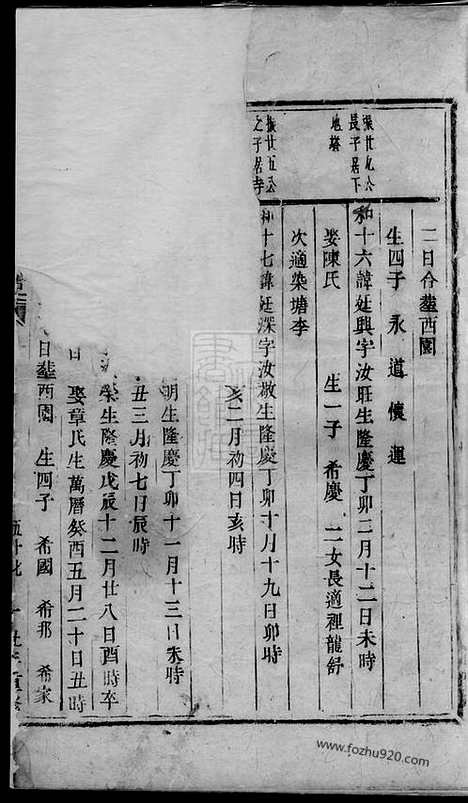 二日合塟西園
生四子 永道 懷運
榮廿九公長子居下地塔
和十六諱廷興字汝旺生隆慶丁卯二月十二日未時
娶陳氏 生一子 希慶 二女長適裡龍舒
次適染塘李
振廿五公之子居寺
和十七諱廷深字汝敬生隆慶丁卯十月十九日卯時
亥二月初四日亥時
明生隆慶丁卯十一月十三日未時
丑三月初七日辰時
榮生隆慶戊辰十二月廿八日酉時卒
日 娶章氏生萬曆癸酉五月二十日丑時
日塟西園 生四子 希國 希邦 希家
www.fozhu920.com